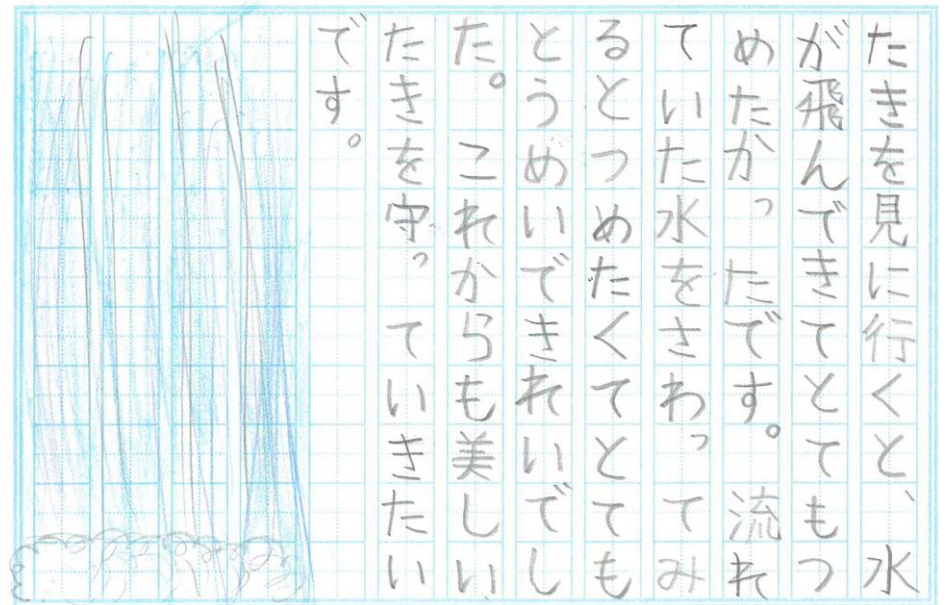 たきを見に行くと、水
が飛んできてとてもつ
めたかったです。流れ
ていた水をさわってみ
るとつめたくてとても
とうめいできれいでし
た。これからも美しい
たきを守っていきたい
です。